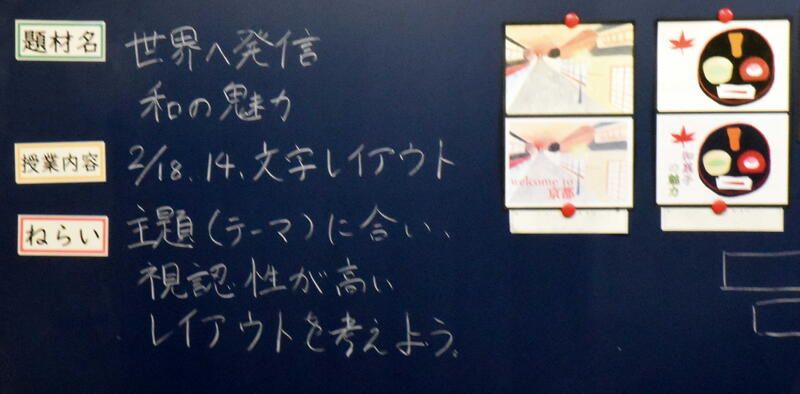 題材名
世界へ発信
和の魅力
授業内容
2/18.14、文字レイアウト
ねらい
主題(テーマ)に合い、
視認性が高い
レイアウトを考えよう。
welcome to
京都
和菓子
の魅力